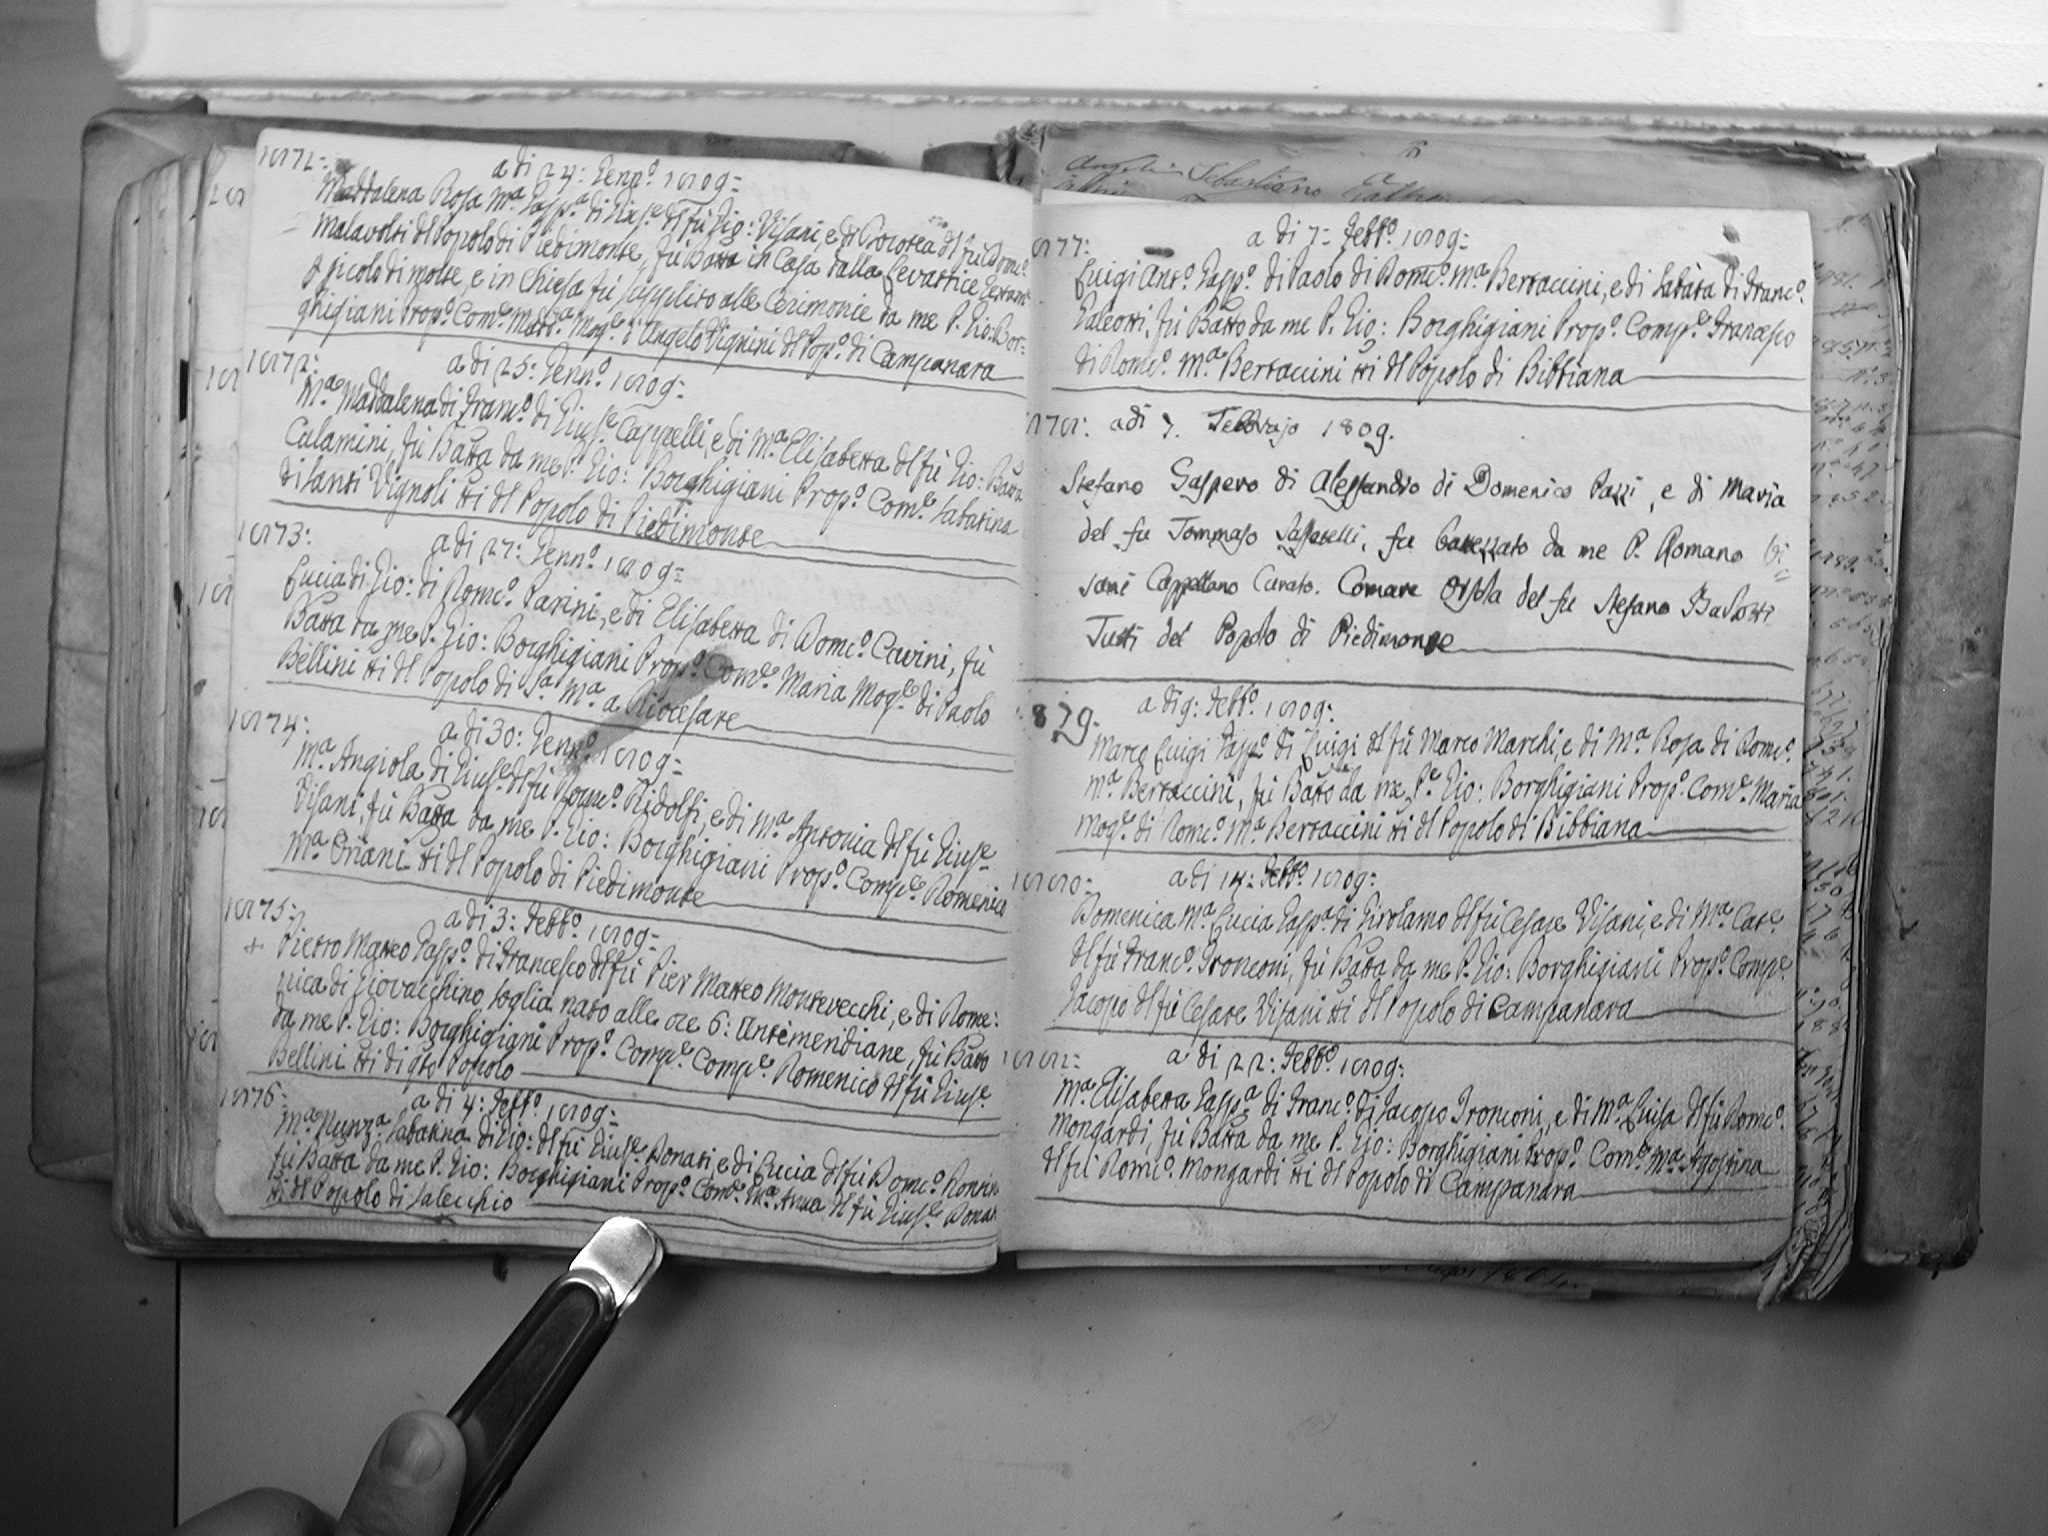 1871:
a di 24: Genn.o 1809:
Maddalena Rosa M.a Gasp.a di Gius.e del fù Gio: Visani, e di Dorotea del fù Dom.co
Malavolti del Popolo di Piedimonte, fù Batta in Casa dalla Levatrice
p. picolo di morte, e in Chiesa fù supplito alle Cerimonie da me P. Gio: Bor=
ghigiani Prop.o Com.e Madd.a Mog.e d'Angelo Vignini del Pop.o di Campanara
1872:
a di 25: Genn.o 1809:
M.a Maddalena di Franc.o di Gius.e Cappelli, e di M.a Elisabetta del fù Gio: Batta
Calamini, fù Batta da me P. Gio: Borghigiani Prop.o Com.e Sabatina
di Santi Vignoli tti del Popolo di Piedimonte
1873:
a di 27: Genn.o 1809:
Lucia di Gio: di Dom.co Parini, e di Elisabetta di Dom.co Cavini, fù
Batta da me P. Gio: Borghigiani Prop.o Com.e Maria Mog.e di Paolo
Bellini tti del Popolo di S.a M.a a Riocesare
1874:
a di 30: Genn.o 1809:
M.a Angiola di Gius.e del fù Dom.co Ridolfi, e di M.a Antonia del fù Gius.e
Visani, fù Batta da me P. Gio: Borghigiani Prop.o Comp.e Domenico
M.a Oriani tti del Popolo di Piedimonte
1875:
a di 3: Febb.o 1809:
+ Pietro Matteo Gasp.o di Francesco del fù Pier Matteo Montevecchi, e di Dome:
nica di Giovacchino Soglia nato alle ore 6: Antemeridiane, fù Batto
da me P. Gio: Borghigiani Prop.o Comp.e Comp.e Domenico del fù Gius.e
Bellini tti di qto Popolo
1876:
a di 4: Febb.o 1809:
M.a Nunz.a Sabatina di Gio: del fù Gius.e Donati e di Lucia del fù Dom.co
fù Batta da me P. Gio: Borghigiani Prop.o Com.e M.a Anna del fù Gius.e Donati
tti del Popolo di Salecchio
877:
a di 7: Febb.o 1809:
Luigi Ant.o Gasp.o di Paolo di Dom.co M.a Bertaccini, e di Sabata di Franc.o
Galeotti, fù Batto da me P. Gio: Borghigiani Prop.o Comp.e Francesco
di Dom.co M.a Bertaccini tti del Popolo di Bibbiana
878: adi 7. Febbrajo 1809.
Stefano Gaspero di Alessandro di Domenico Pazzi, e di Maria
del fu Tommaso Sassatelli, fu battezzato da me P. Romano Vi
sani Cappellano Curato. Comare Orsola del fu Stefano Barlotti
Tutti del Popolo di Piedimonte
879:
a di 9: Febb.o 1809:
Marco Luigi Gasp.o di Luigi del fù Marco Marchi, e di M.a Rosa di Dom.co
M.a Bertaccini, fù Batto da me P.e Gio: Borghigiani Prop.o Com.e Maria
Mog.e di Dom.co M.a Bertaccini tti del Popolo di Bibbiana
1880:
a di 14: Febb.o 1809:
Domenica M.a Lucia Gasp.a di Girolamo del fù Cesare Visani, e di M.a Cat.e
del fù Franc.o Tronconi, fù Batta da me P. Gio: Borghigiani Prop.o Comp.e
Jacopo del fù Cesare Visani tti del Popolo di Campanara
1881:
a di 22: Febb.o 1809:
M.a Elisabetta Gasp.a di Franc.o di Jacopo Tronconi, e di M.a Luisa del fù Dom.co
Mongardi, fù Batta da me P. Gio: Borghigiani Prop.o Com.e M.a Agostina
del fù Dom.co Mongardi tti del Popolo di Campanara